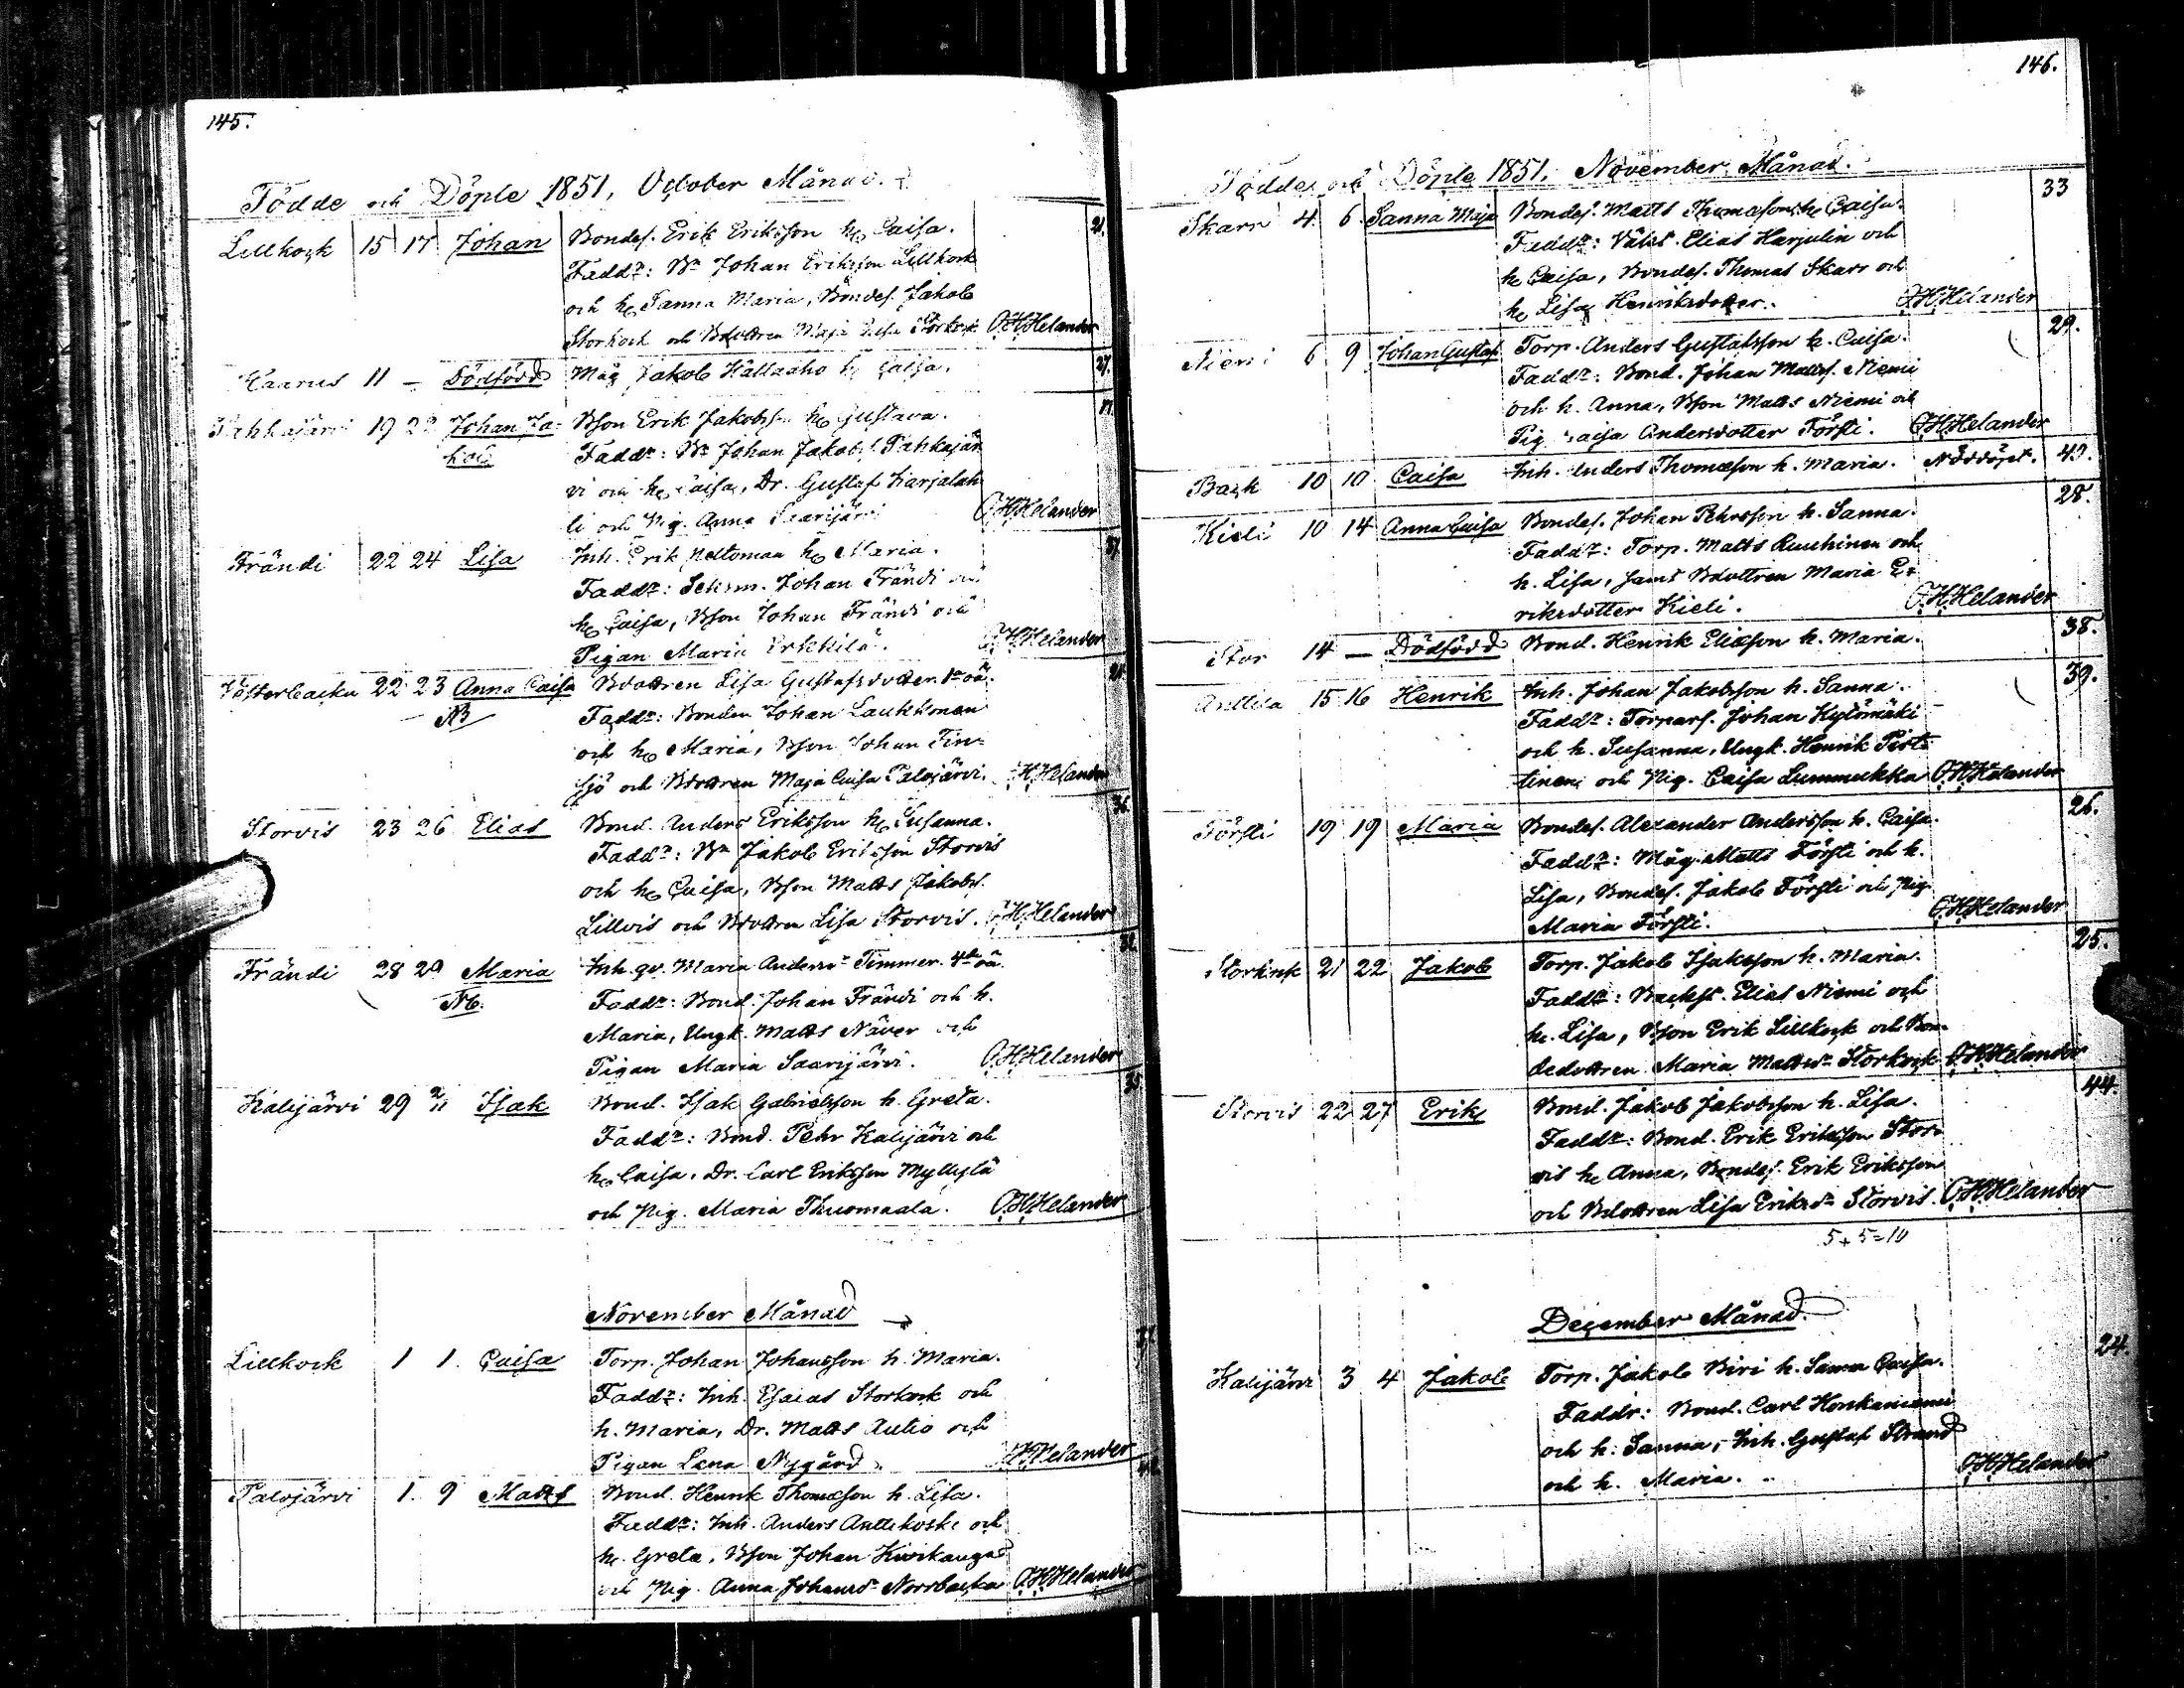 145.
Födde och Döpte 1851, October Månad.
Lillkock 15 17 Johan Bondes. Erik Eriksson h. Caisa. 21.
Faddr: Bn Johan Eriksson Lillkock
och h. Sanna Maria, Bondes. Jakob
Storkock och Bdottren Maja Storkock O.H.Helander
Kaarus 11 – Dödfödd Måg Jakob Hallaaho h. Caisa. 27.
Pahkajärvi 19 22 Johan Ja- Bson Erik Jakobss. h. Gustava.
kob Faddr: Bn Johan Jakobs. Pahkajär
vi och h. Caisa, Dr. Gustaf Karjalah
ti och Pig. Anna Saarijärvi O.H.Helander
Frändi 22 24 Lisa Inh. Erik Peltoman h. Maria. 37.
Faddr: Johan Frändi och
h. Caisa, Bson Johan Frändi och
Pigan Maria Erkkilä. O.H.Helander
Vesterbacka 22 23 Anna Caisa Bdottren Lisa Gustafsdotter. 1a oä.
NB Faddr: Bonden Johan Laukkonen
och h. Maria, Bson Johan Fin-
sjö och Bdottren Maja Caisa Talojärvi. O.H.Helander
Storvis 23 26 Elias Bond. Anders Eriksson h. Susanna. 36.
Faddr: Bn Jakob Eriksson Storvis
och h. Caisa, Bson Matts Jakobs.
Lillvis och Bdottren Lisa Storvis. O.H.Helander
Frändi 28 29 Maria Inh. qv. Maria Andersdr Timmer. 4de oä. 32.
Nb. Faddr: Bond. Johan Frändi och h.
Maria, Ungk. Matts Näver och
Pigan Maria Saarijärvi. O.H.Helander
Kalijärvi 29 2/11 Isak Bond. Isak Gabrielsson h. Greta. 35.
Faddr: Bond. Pehr Kalijärvi och
h. Caisa, Dr. Carl Eriksson Myllylä
och Pig. Maria Thuomaala. O.H.Helander
November Månad
Lillkock 1 1. Caisa Torp. Johan Johansson h. Maria.
Faddr: Inh. Esaias Storkock och
h. Maria, Dr. Matts Aulio och
Pigan Lena Nygård. O.H.Helander
Talojärvi 1. 9 Matts Bond. Henrik Thomasson h. Lisa.
Faddr: Inh. Anders Anttikoski och
h. Greta, Bson Johan Kivikangas
och Pig. Anna Johansdr Norrbacka O.H.Helander
146.
Födde och Döpte 1851. November Månad.
Skarr 4. 6. Sanna Maja Bondes. Matts Thomasson h. Caisa. 33
Faddr: Elias Harjulin och
h. Caisa, Bondes. Thomas Skarr och
h. Lisa Henriksdotter. O.H.Helander
Niemi 6 9 Johan Gustaf Torp. Anders Gustafsson h. Caisa. 29.
Faddr: Bond. Johan Mattss. Niemi
och h. Anna, Bson Matts Niemi och
Pig. Caisa Andersdotter Försti. O.H.Helander
Back 10 10. Caisa Inh. Anders Thomasson h. Maria. Nöddöpt. 40.
Kieli 10 14 Anna Caisa Bondes. Johan Pehrsson h. Sanna. 28.
Faddr: Torp. Matts Ruuhinen och
h. Lisa, samt Bdottren Maria E-
riksdotter Kieli. O.H.Helander
Stor 14 – Dödfödd Bond. Henrik Eliasson h. Maria. 38.
Anttila 15 16 Henrik Inh. Johan Jakobsson h. Sanna. 39.
Faddr: Torpars. Johan Kylömäki
och h. Susanna, Ungk. Henrik Pist-
tinen och Pig. Caisa Lummukka O.H.Helander
Försti 19 19 Maria Bondes. Alexander Andersson h. Caisa. 26.
Faddr: Måg. Matts Försti och h.
Lisa, Bondes. Jakob Försti och Pig.
Maria Försti. O.H.Helander
Storkock 21 22 Jakob Torp. Jakob Isaksson h. Maria. 25.
Faddr: Backst. Elias Niemi och
h. Lisa, Bson Erik Lillkock och Bon-
dedottren Maria Mattsdr Storkock O.H.Helander
Storvis 22 27 Erik Bond. Jakob Jakobsson h. Lisa. 44.
Faddr: Bond. Erik Eriksson Stor-
vis h. Anna, Bondes. Erik Eriksson
och Bdottren Lisa Eriksdr Storvis. O.H.Helander
5+5=10
December Månad.
Kalijärvi 3 4 Jakob Torp. Jakob Biri h. Sanna Caisa. 24.
Faddr: Bond. Carl Honkaniemi
och h. Sanna, Inh. Gustaf Strand
och h. Maria. O.H.Helander